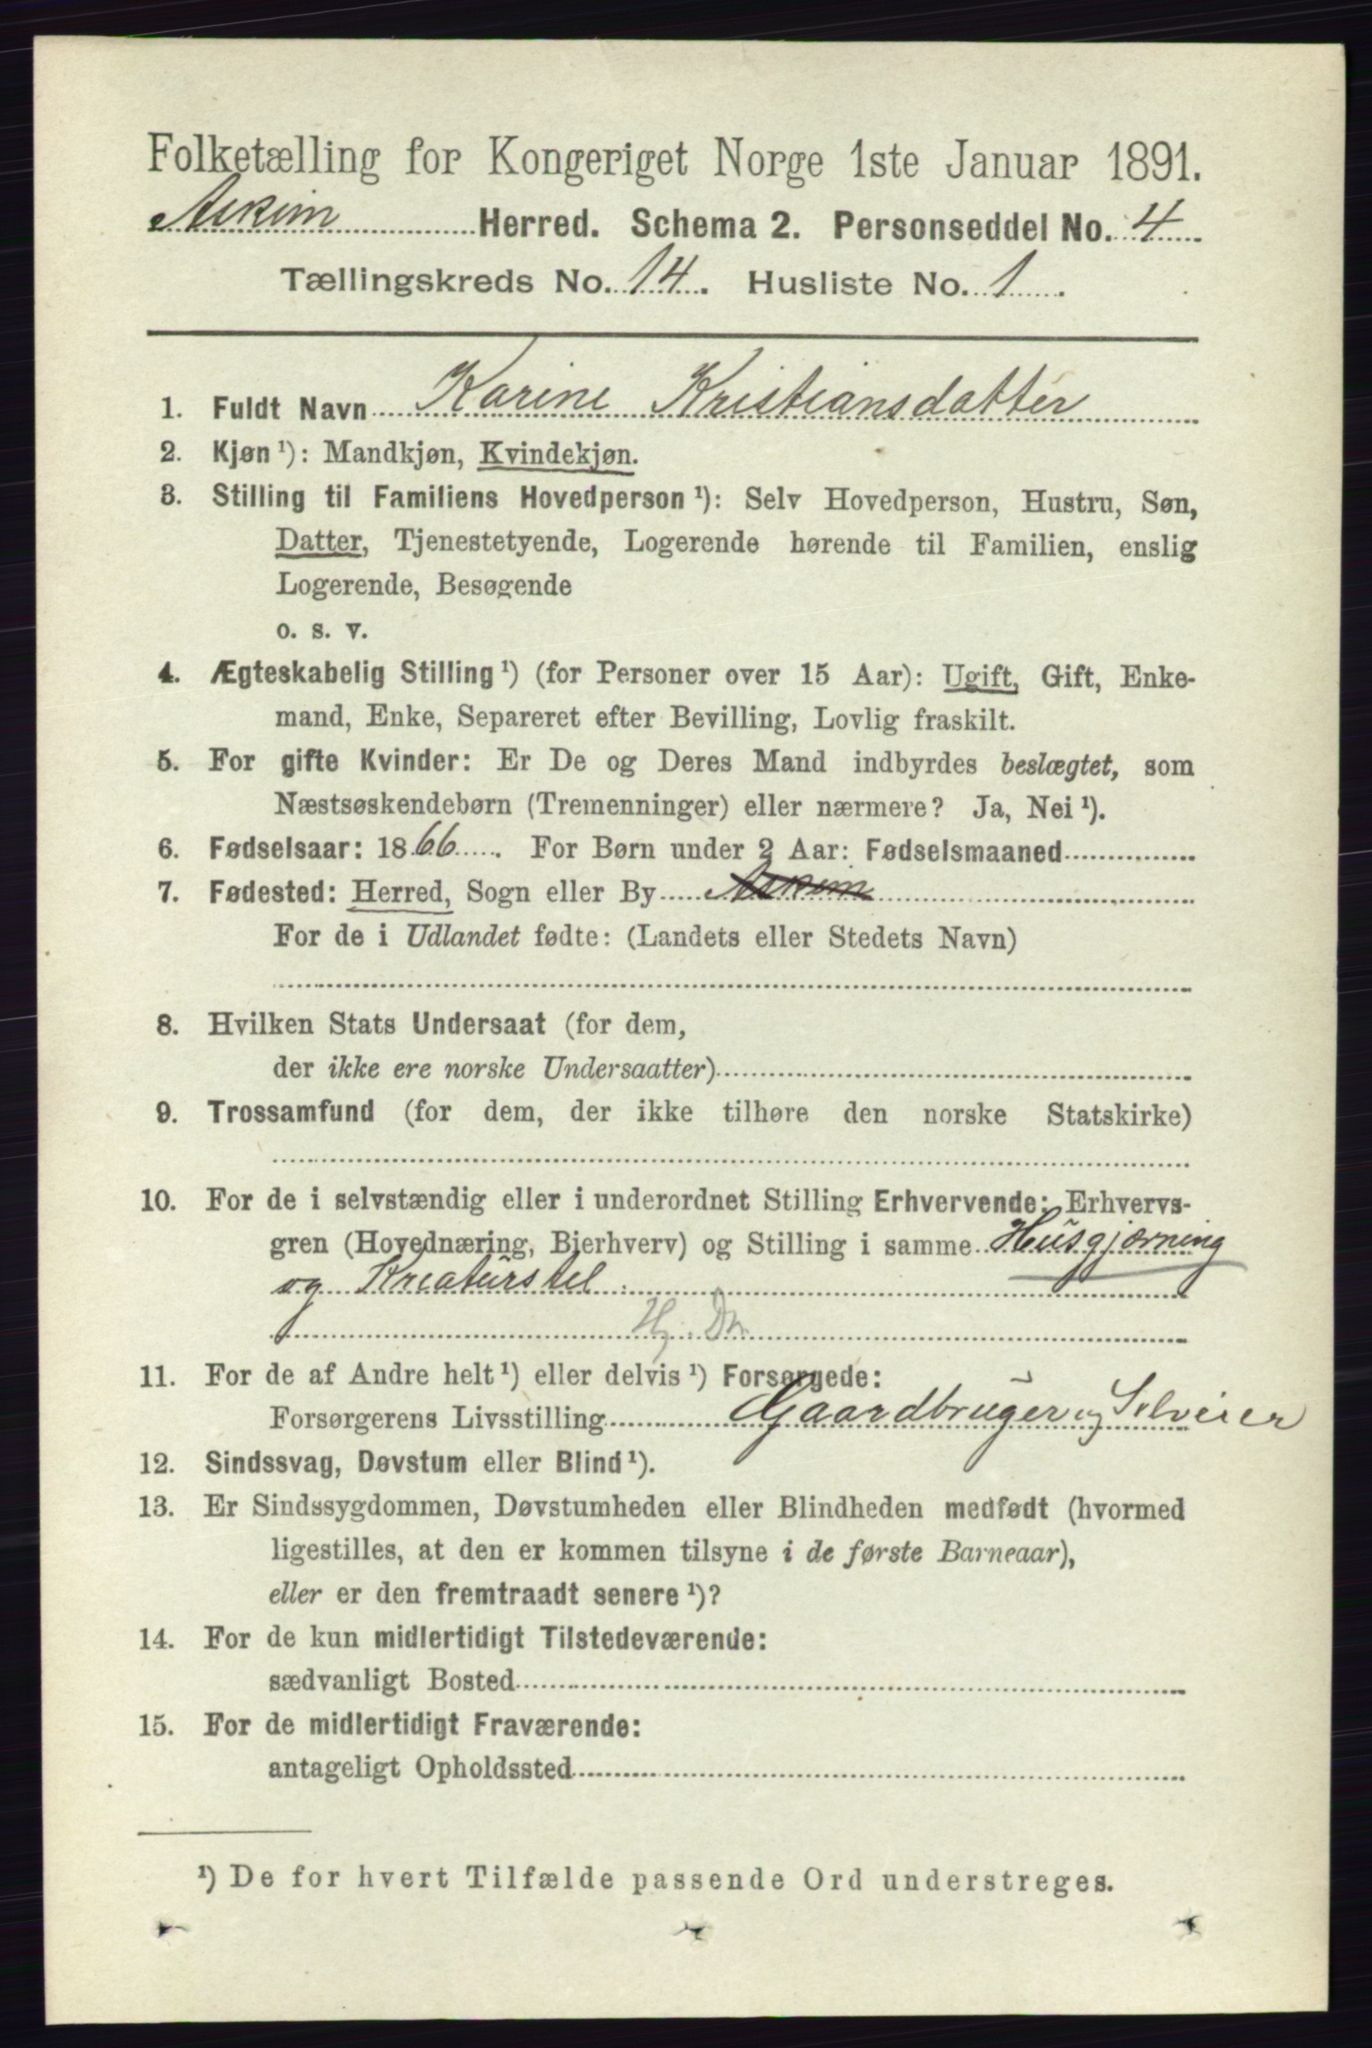 Folketælling for Kongeriget Norge 1ste Januar 1891.
Askim Herred. Schema 2. Personseddel No. 4
Tællingskreds No. 14. Husliste No. 1.
1. Fuldt Navn Karine Kristiansdatter
2. Kjøn ¹): Mandkjøn, Kvindekjøn.
3. Stilling til Familiens Hovedperson ¹): Selv Hovedperson, Hustru, Søn,
Datter, Tjenestetyende, Logerende hørende til Familien, enslig
Logerende, Besøgende
o. s. v.
4. Ægteskabelig Stilling ¹) (for Personer over 15 Aar): Ugift, Gift, Enke-
mand, Enke, Separeret efter Bevilling, Lovlig fraskilt.
5. For gifte Kvinder: Er De og Deres Mand indbyrdes beslægtet, som
Næstsøskendebørn (Tremenninger) eller nærmere? Ja, Nei ¹).
6. Fødselsaar: 1866. For Børn under 2 Aar: Fødselsmaaned
7. Fødested: Herred, Sogn eller By Askim
For de i Udlandet fødte: (Landets eller Stedets Navn)
8. Hvilken Stats Undersaat (for dem,
der ikke ere norske Undersaatter)
9. Trossamfund (for dem, der ikke tilhøre den norske Statskirke)
10. For de i selvstændig eller i underordnet Stilling Erhvervende: Erhvervs-
gren (Hovednæring, Bierhverv) og Stilling i samme Husgjerning
og Kreaturstel
11. For de af Andre helt ¹) eller delvis ¹) Forsørgede:
Forsørgerens Livsstilling Gaardbruger og Selveier
12. Sindssvag, Døvstum eller Blind ¹).
13. Er Sindssygdommen, Døvstumheden eller Blindheden medfødt (hvormed
ligestilles, at den er kommen tilsyne i de første Barneaar),
eller er den fremtraadt senere ¹)?
14. For de kun midlertidigt Tilstedeværende:
sædvanligt Bosted
15. For de midlertidigt Fraværende:
antageligt Opholdssted
¹) De for hvert Tilfælde passende Ord understreges.